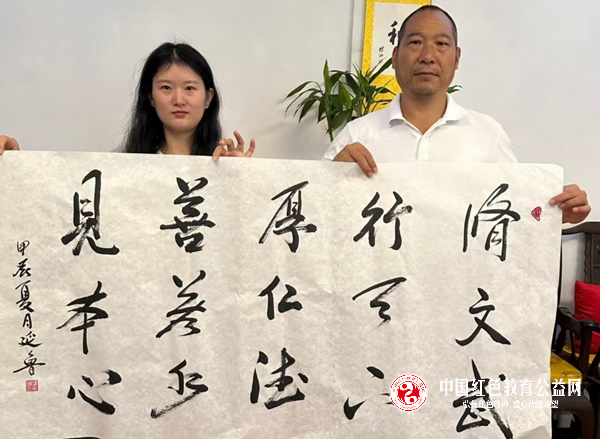 脩文武
行天下
厚仁德
善若水
見本心
甲辰夏月延魯
中国红色教育公益网